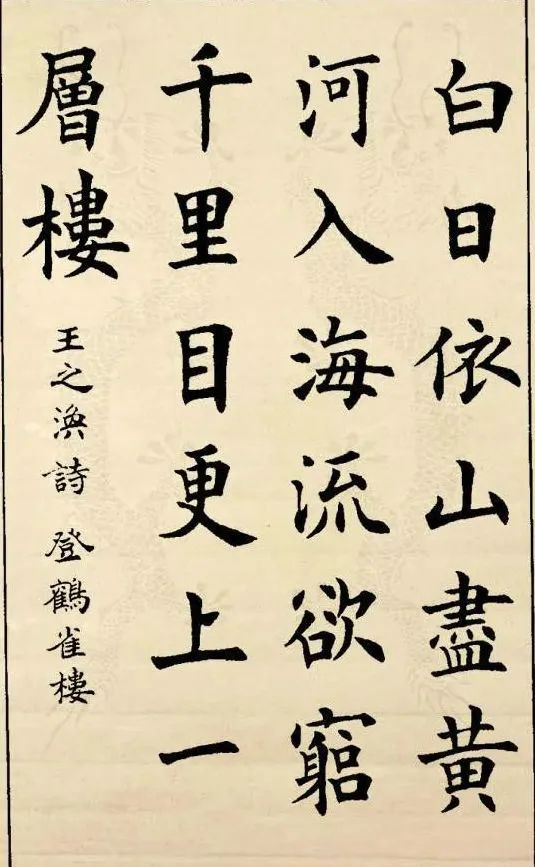 白日依山盡黄
河入海流欲窮
千里目更上一
層樓
王之渙詩 登鶴雀樓